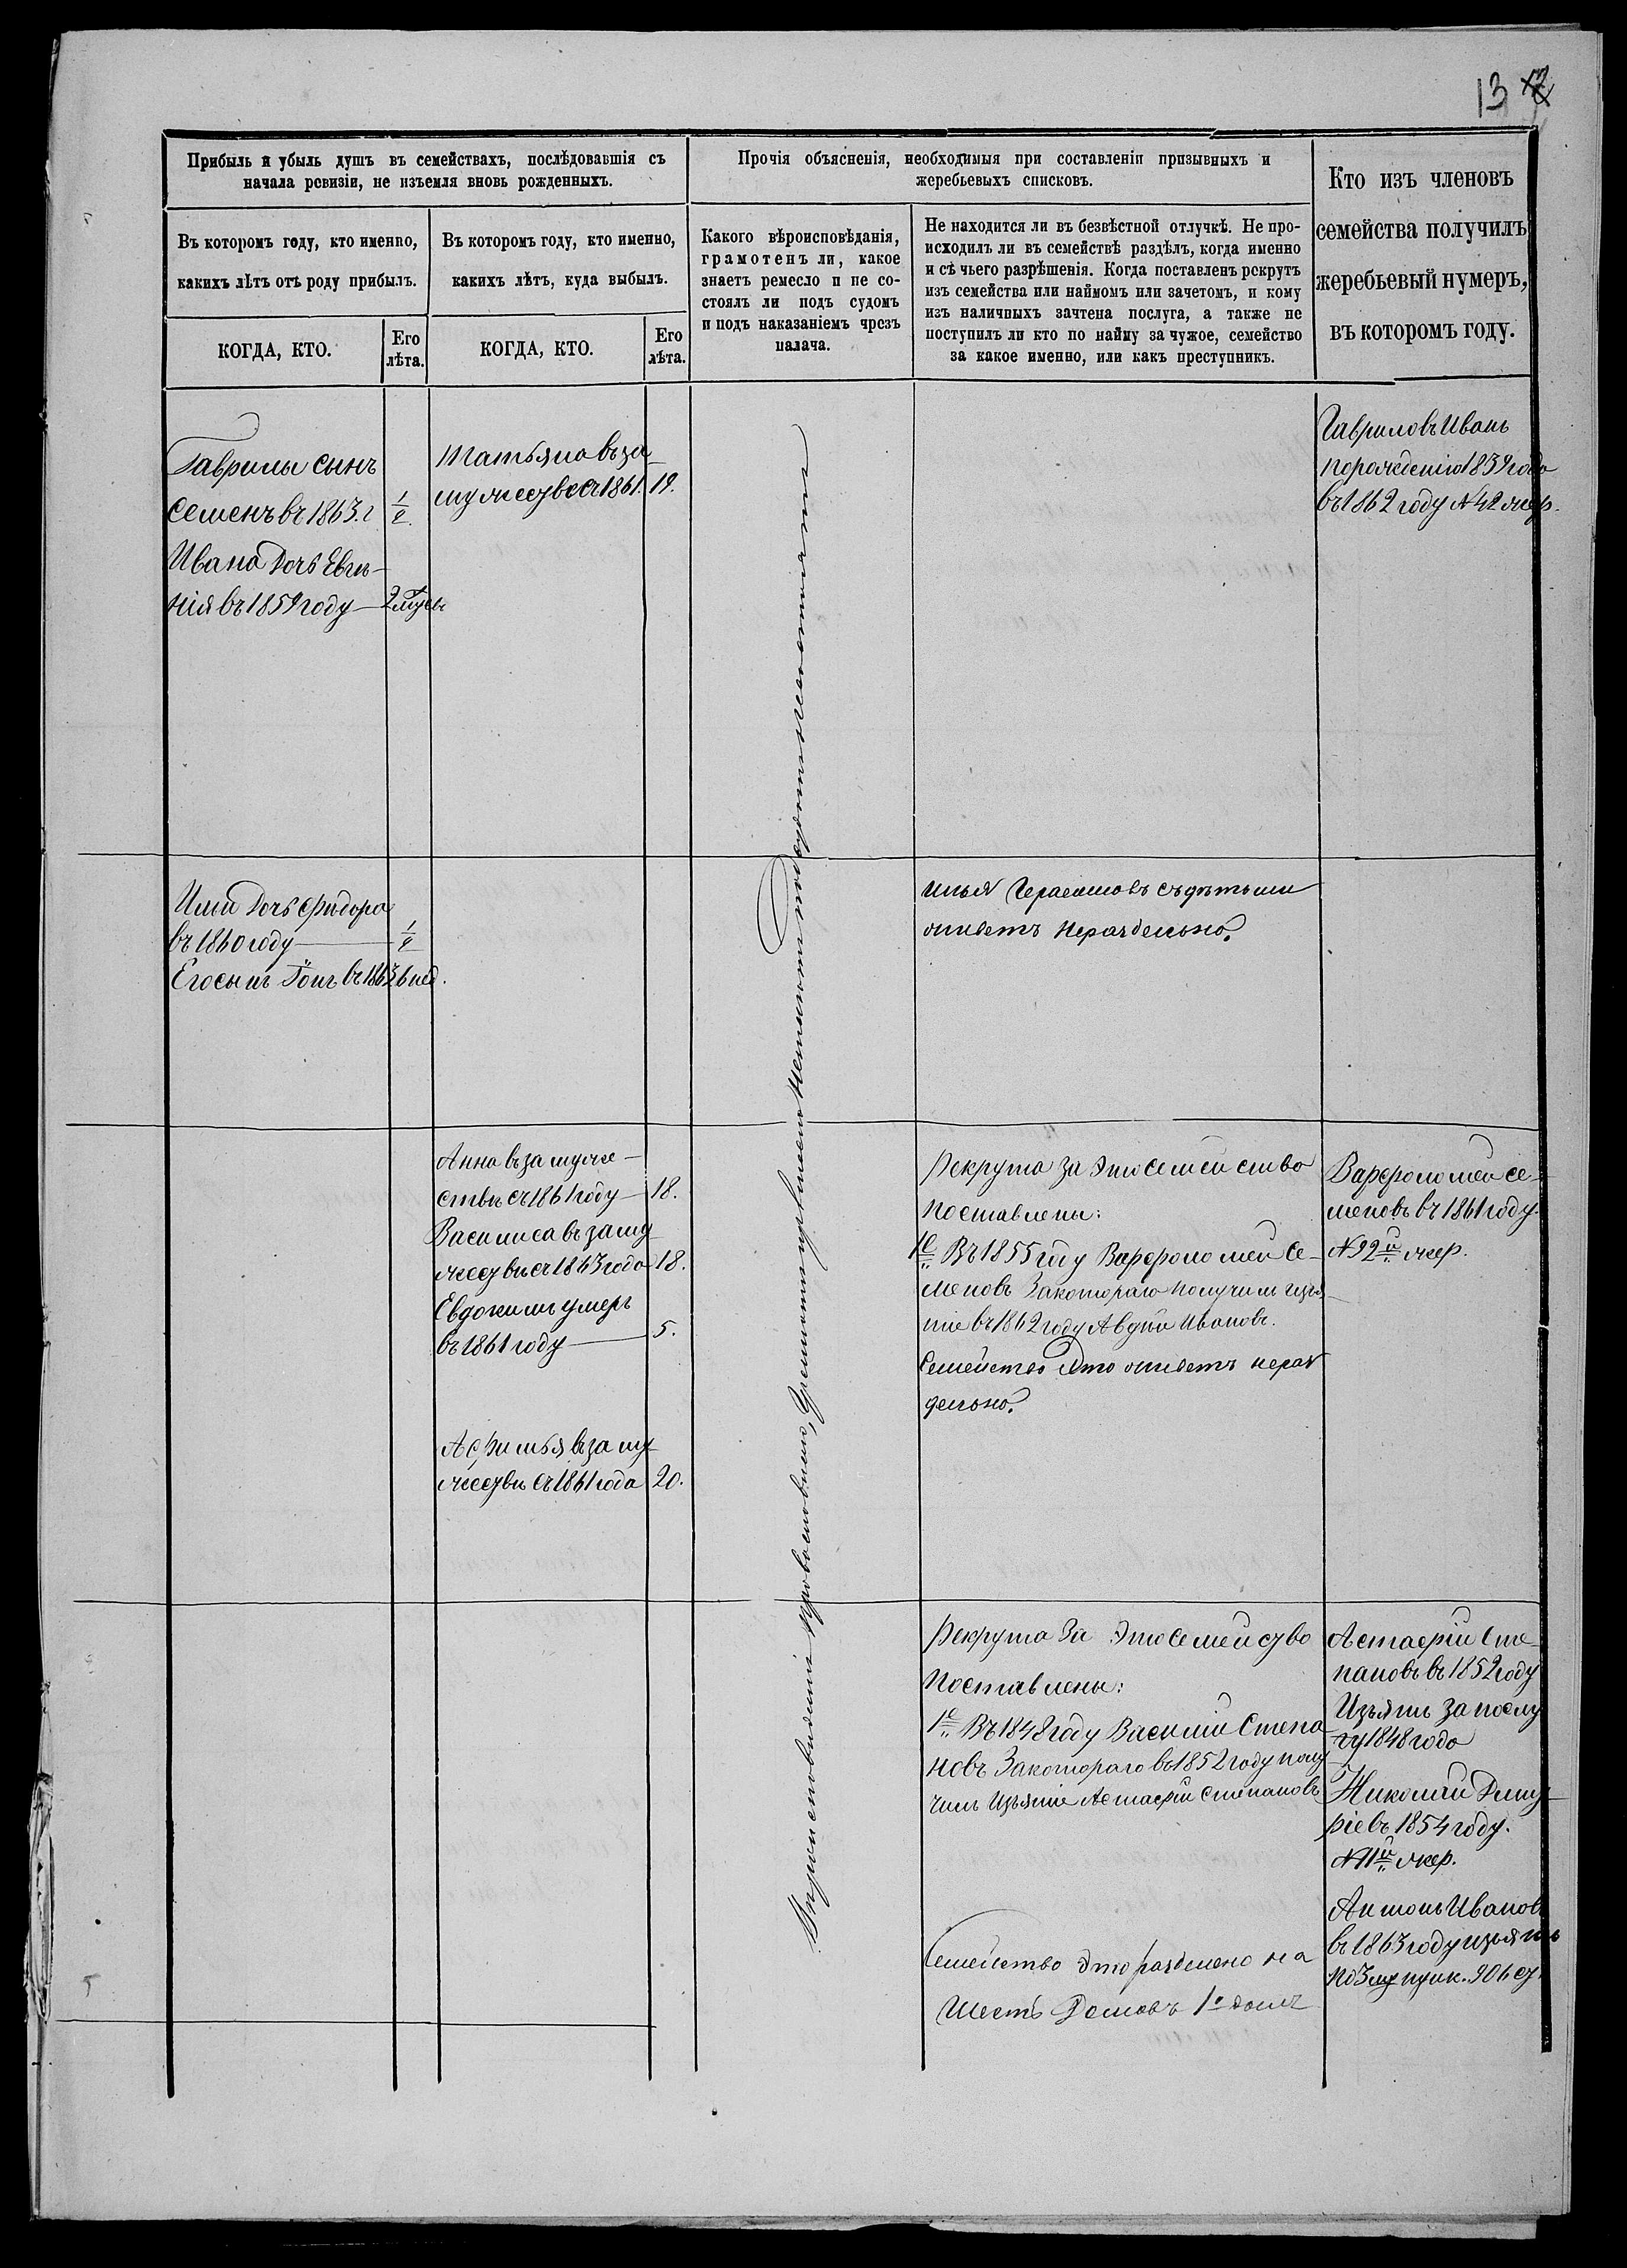 13
Прибыль и убыль душъ въ семействахъ, послѣдовавшія съ
начала ревизіи, не изъемля вновь рожденныхъ.
Прочія объясненія, необходимыя при составленіи призывныхъ и
жеребьевыхъ списковъ.
Кто изъ членовъ
семейства получилъ
жеребьевый нумеръ,
въ которомъ году.
Въ которомъ году, кто именно,
какихъ лѣтъ отъ роду прибылъ.
Въ которомъ году, кто именно,
какихъ лѣтъ, куда выбылъ.
Какого вѣроисповѣданія,
грамотенъ ли, какое
знаетъ ремесло и не со-
стоялъ ли подъ судомъ
и подъ наказаніемъ чрезъ
палача.
Не находится ли въ безвѣстной отлучкѣ. Не про-
исходилъ ли въ семействѣ раздѣлъ, когда именно
и съ чьего разрѣшенія. Когда поставленъ рекрутъ
изъ семейства или наймомъ или зачетомъ, и кому
изъ наличныхъ зачтена послуга, а также не
поступилъ ли кто по найму за чужое, семейство
за какое именно, или какъ преступникъ.
КОГДА, КТО.
Его
лѣта.
КОГДА, КТО.
Его
лѣта.
Гаврилы сынъ
Семенъ въ 1863.г 1/2.
Ивана Дочь Евгѣ-
нія въ 1859 году —
Татьяна въ за-
мужествѣ съ 1861. 19.
Гавриловъ Иванъ
порожденію 1839 года
въ 1862 году № 42 жер.
Ильи Дочь Ѳидора
въ 1860 году — 1/2
Его сынъ въ 1863 6 нед.
Илья Герасимовъ съ дѣтьми
живетъ Нераздельно.
Анна въ замуже-
ствѣ съ 1861 году — 18.
Василиса въ заму-
жествѣ съ 1863 года 18.
Евдокимъ умеръ
въ 1861 году — 5.
Афимья въ заму-
жествѣ съ 1861 года 20.
Рекрута за Это Семейство
Поставлены:
1е Въ 1855 году Варфоломей Се-
меновъ За котораго получилъ изъя-
тіе въ 1862 году Авдѣй Ивановъ.
Семейство Это живетъ нераз
дельно.
Варфоломей Се-
меновъ въ 1861 году.
№ 92й жер.
Рекрута За Это Семейство
Поставлены:
1е Въ 1848 году Василій Степа-
новъ За котораго въ 1852 году полу
чилъ Изъятіе Астафій Степановъ
Семейство Это разделено на
Шесть Домовъ 1е домъ
Астафій Сте-
пановъ въ 1852 году
Изъятъ За послу
гу 1848 года
Николай Дмит-
ріевъ 1854 году.
№ 11й жер.
Антонъ Ивановъ
въ 1863 году изъятъ
по 3му пунк. 906 ст.
Вѣроисповѣданія православнаго, Грамотныхъ